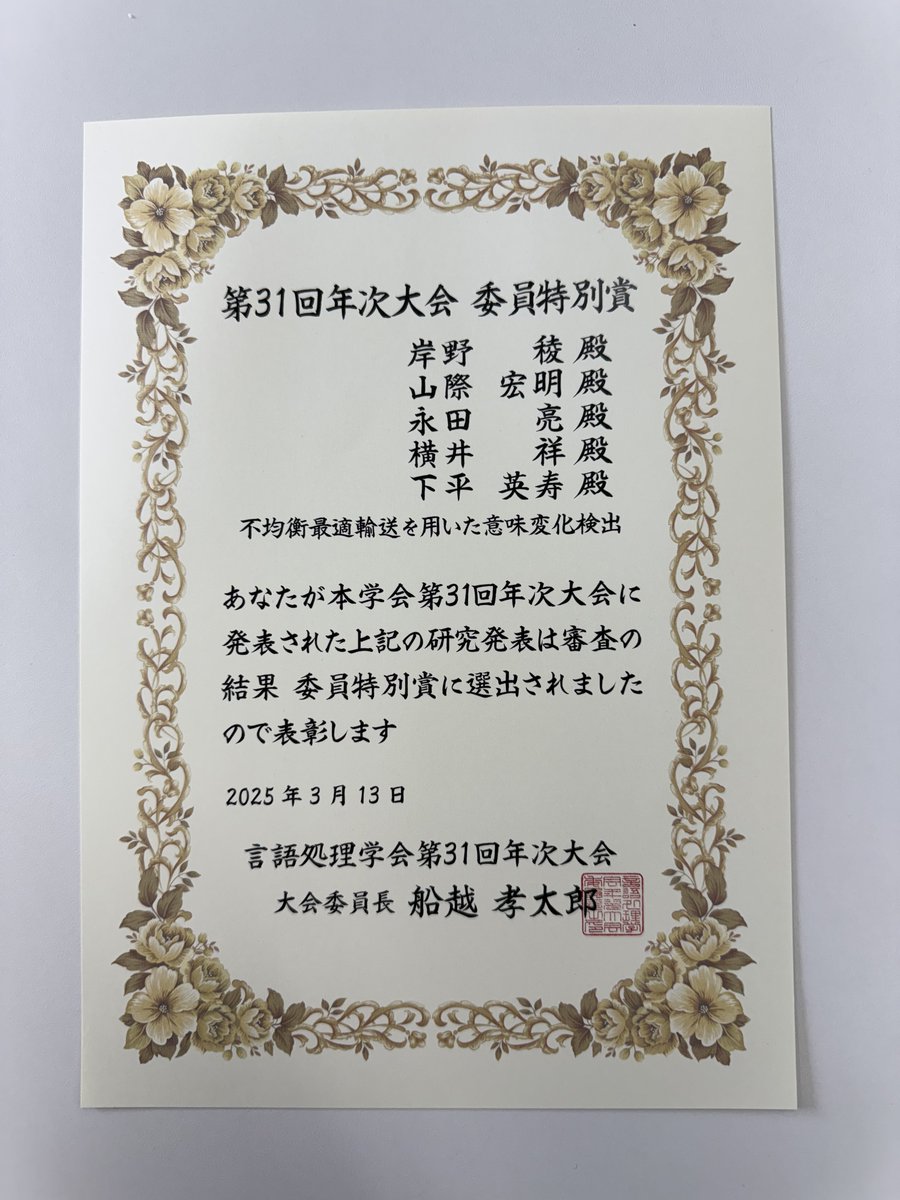 第31回年次大会 委員特別賞
岸野 稜 殿
山際 宏明 殿
永田 亮 殿
横井 祥 殿
下平 英寿 殿
不均衡最適輸送を用いた意味変化検出
あなたが本学会第31回年次大会に
発表された上記の研究発表は審査の
結果 委員特別賞に選出されました
ので表彰します
2025 年 3 月 13 日
言語処理学会第31回年次大会
大会委員長 船越 孝太郎